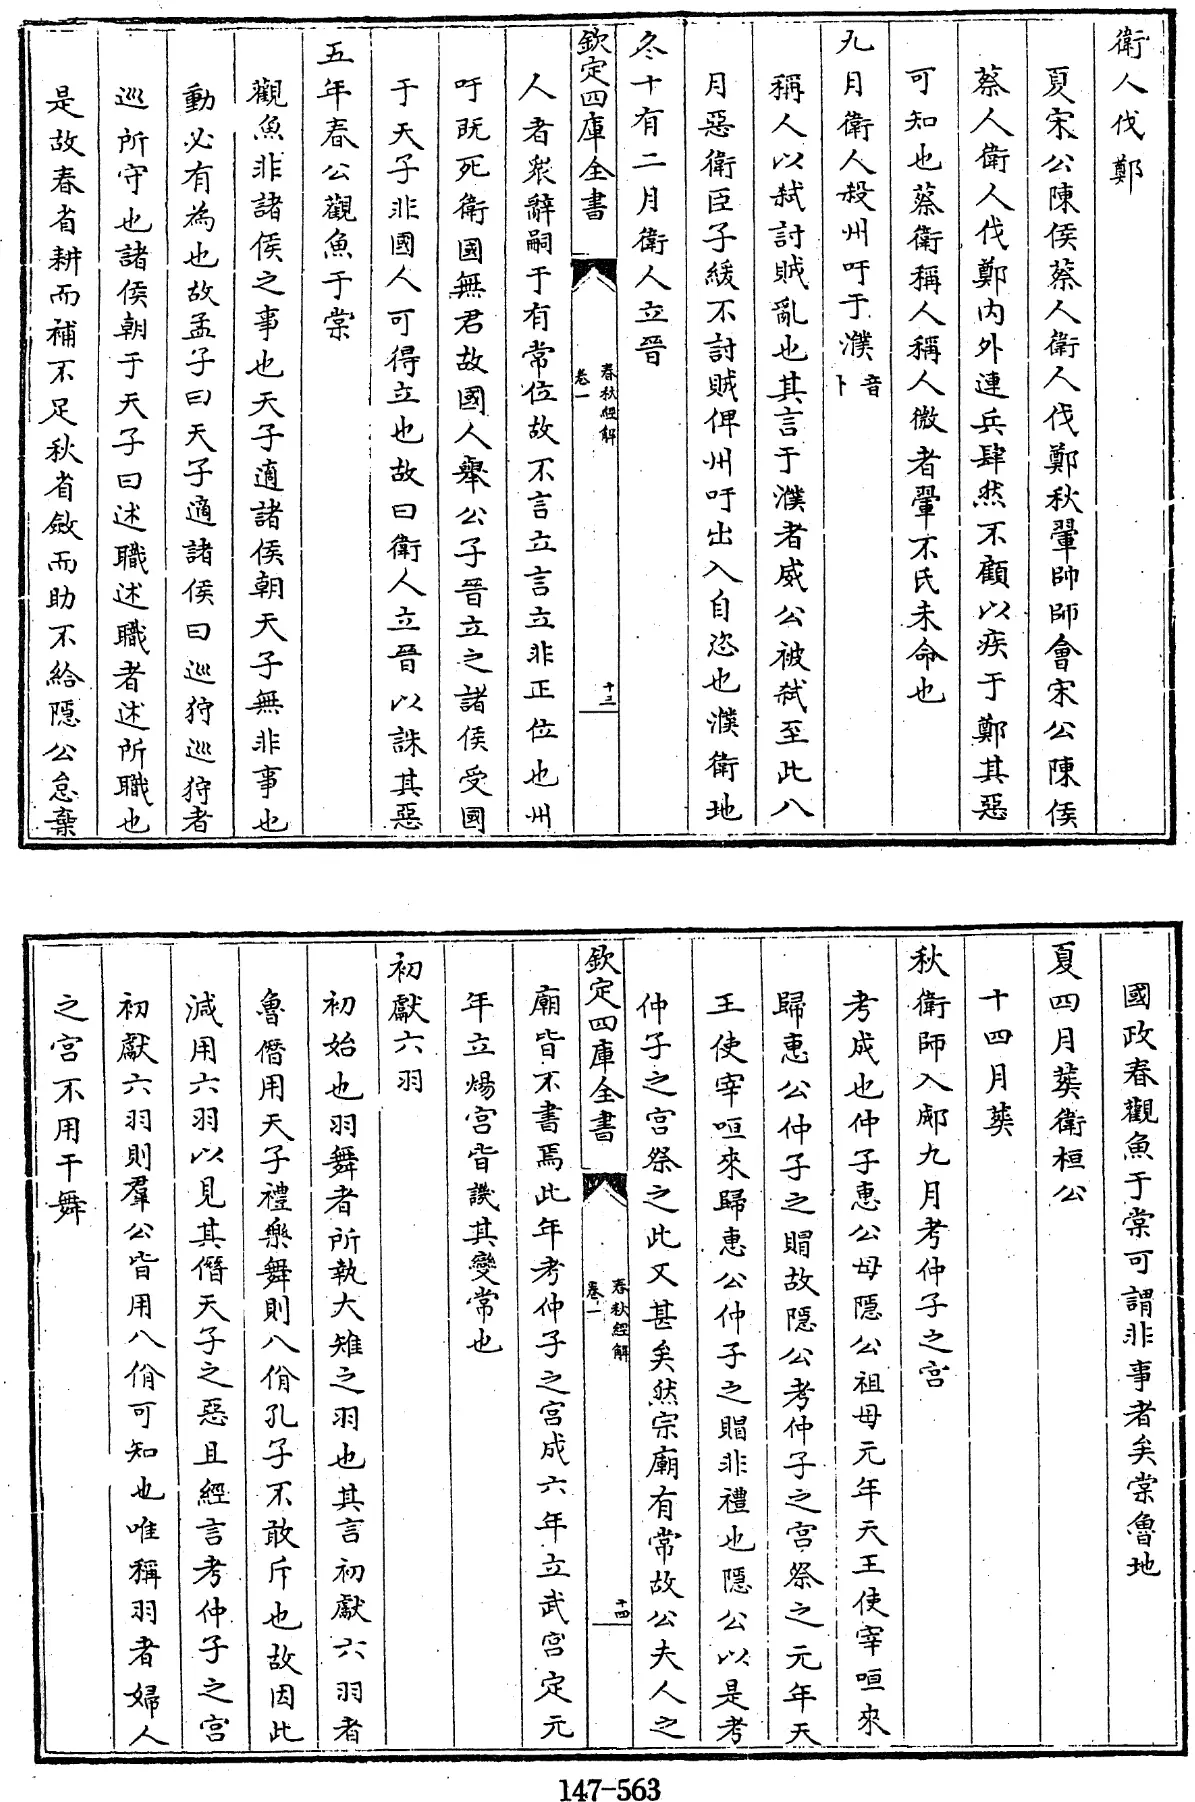 衛人伐鄭
夏宋公陳侯蔡人衛人伐鄭秋翬帥師會宋公陳侯
蔡人衛人伐鄭内外連兵肆然不顧以疾于鄭其惡
可知也蔡衛稱人稱人微者翬不氏未命也
九月衛人殺州吁于濮音卜
稱人以弑討賊亂也其言于濮者威公被弑至此八
月惡衛臣子緩不討賊俾州吁出入自恣也濮衛地
冬十有二月衛人立晉
欽定四庫全書
春秋經解
卷一
十三
人者衆辭嗣于有常位故不言立言立非正位也州
吁既死衛國無君故國人舉公子晉立之諸侯受國
于天子非國人可得立也故曰衛人立晉以誅其惡
五年春公觀魚于棠
觀魚非諸侯之事也天子適諸侯朝天子無非事也
動必有為也故孟子曰天子適諸侯曰巡狩巡狩者
巡所守也諸侯朝于天子曰述職述職者述所職也
是故春省耕而補不足秋省斂而助不給隱公怠棄
國政春觀魚于棠可謂非事者矣棠魯地
夏四月葬衛桓公
十四月葬
秋衛師入郕九月考仲子之宫
考成也仲子惠公母隱公祖母元年天王使宰咺來
歸惠公仲子之賵故隱公考仲子之宫祭之元年天
王使宰咺來歸惠公仲子之賵非禮也隱公以是考
仲子之宫祭之此又甚矣然宗廟有常故公夫人之
欽定四庫全書
春秋經解
卷一
十四
廟皆不書焉此年考仲子之宫成六年立武宫定元
年立煬宫皆譏其變常也
初獻六羽
初始也羽舞者所執大雉之羽也其言初獻六羽者
魯僭用天子禮樂舞則八佾孔子不敢斥也故因此
減用六羽以見其僭天子之惡且經言考仲子之宫
初獻六羽則羣公皆用八佾可知也唯稱羽者婦人
之宫不用干舞
147-563